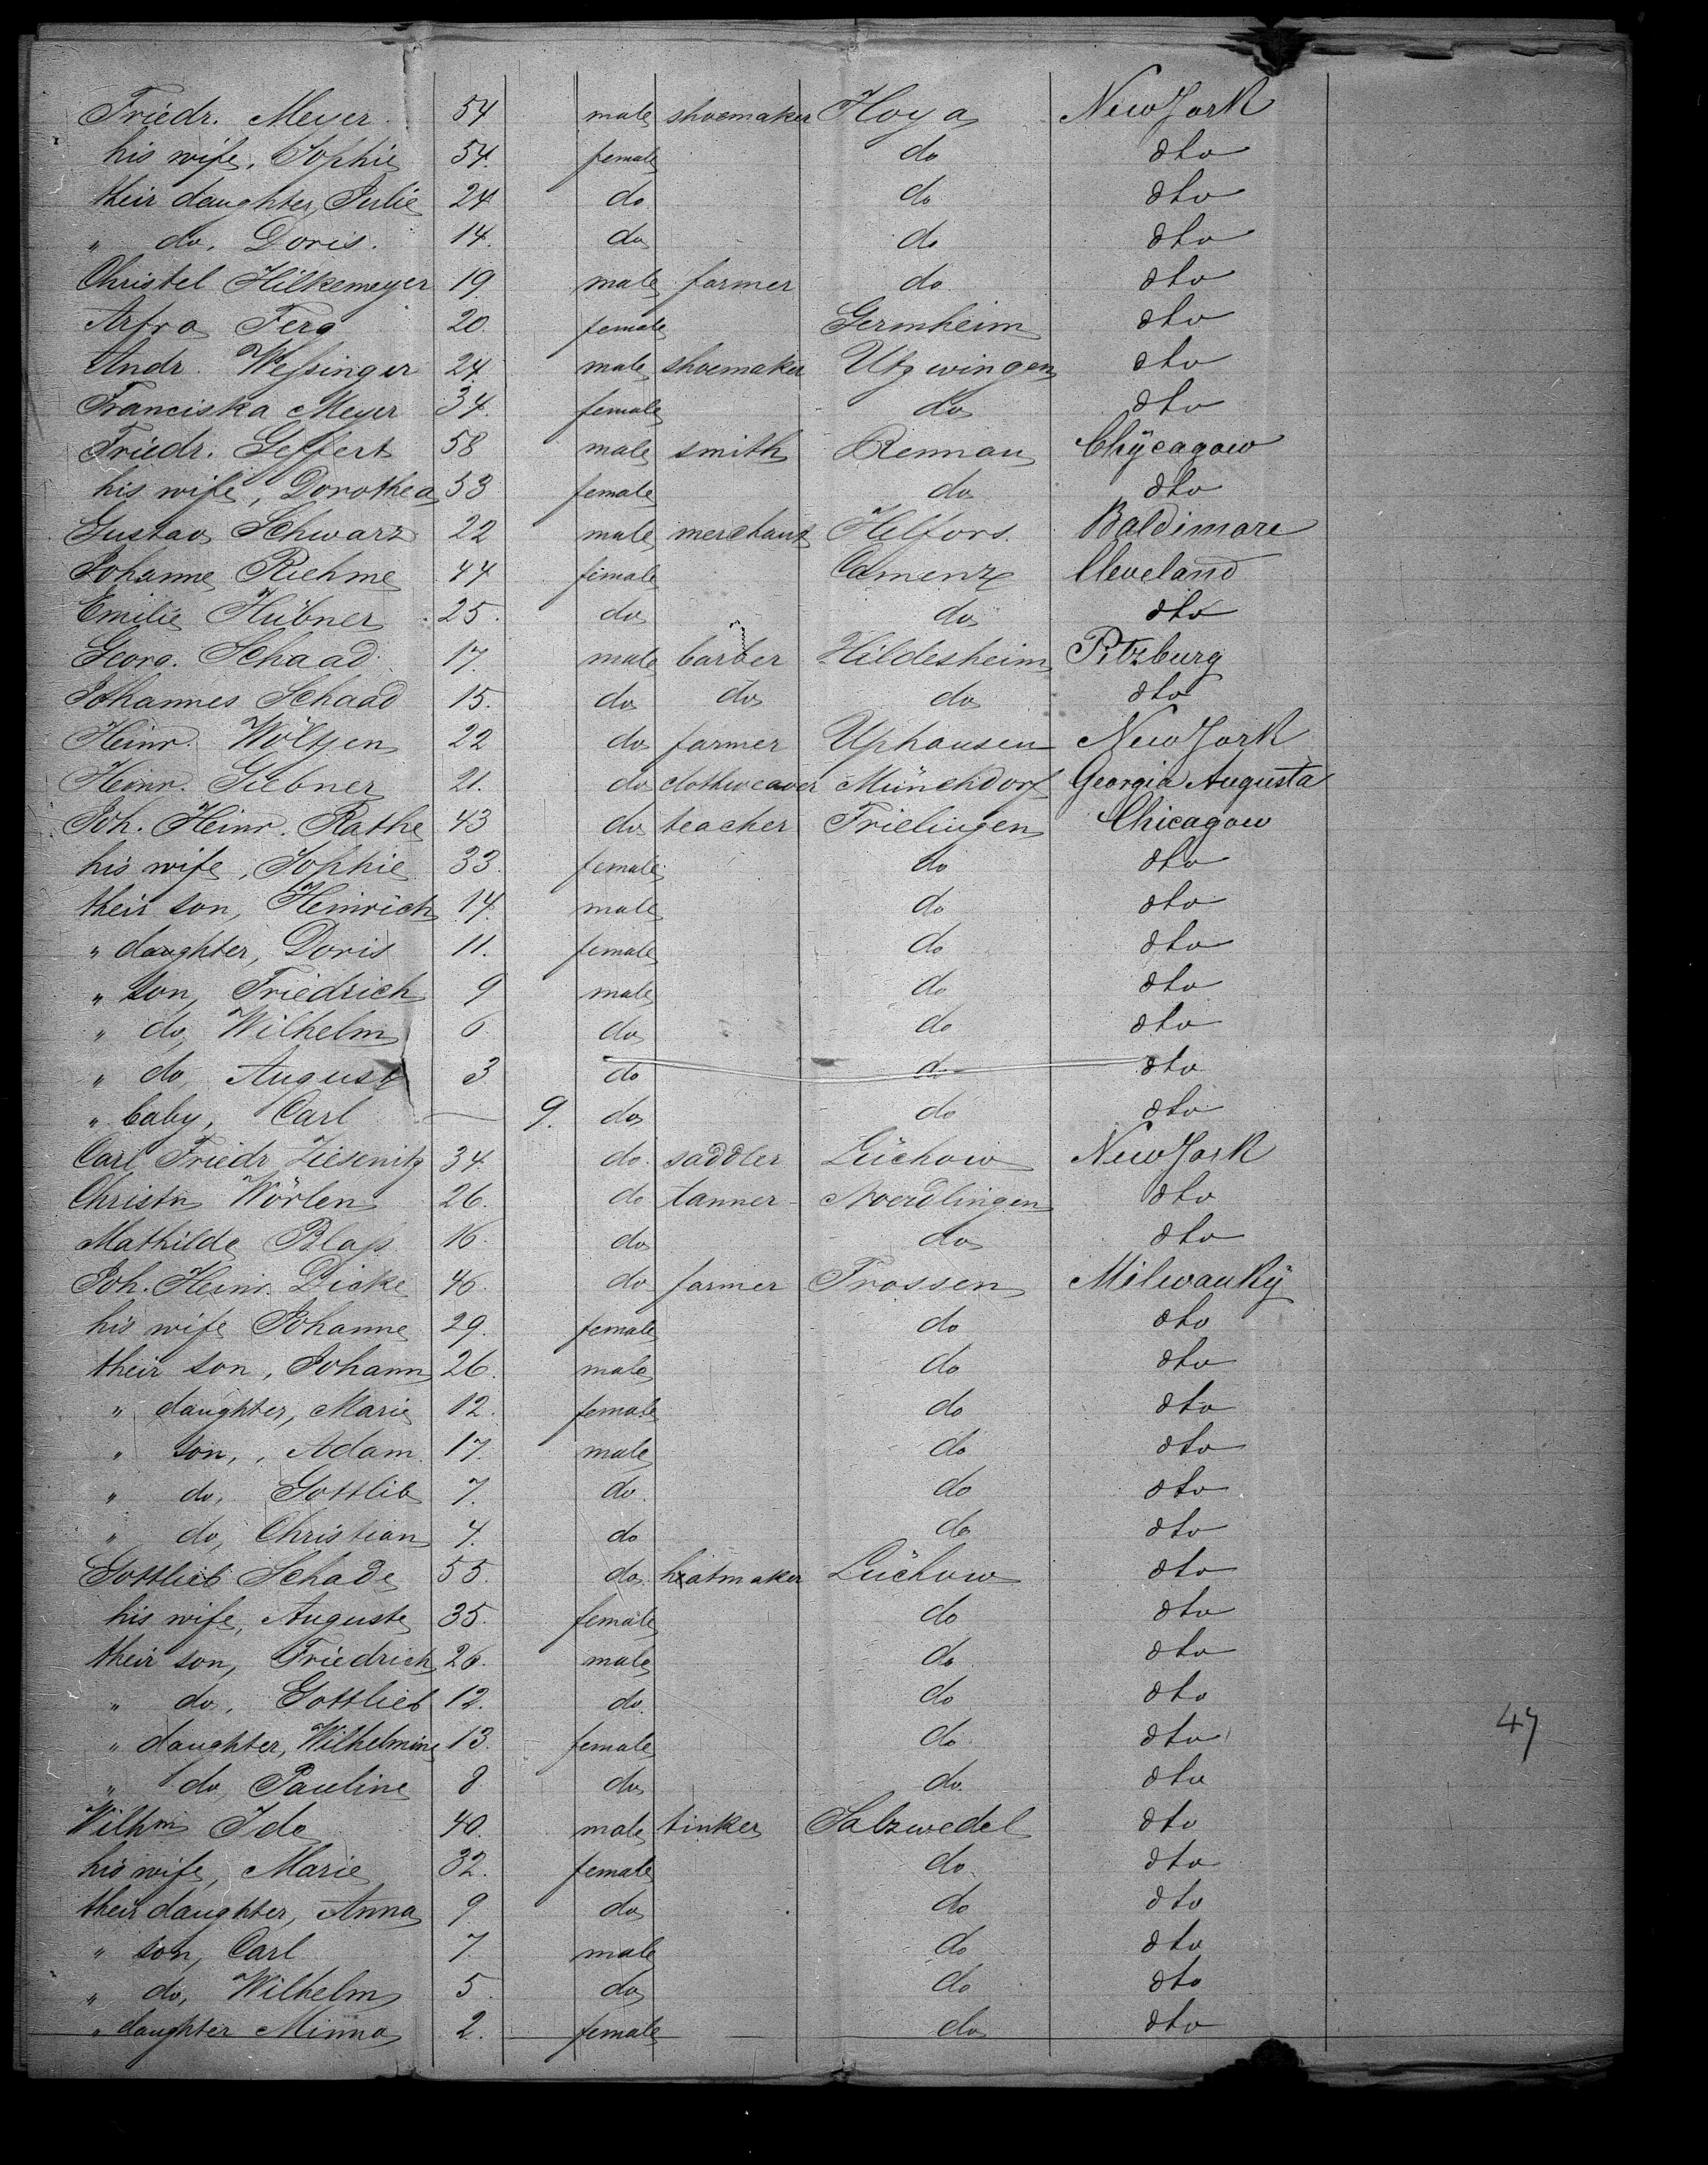 Friedr. Meyer. 54 male shoemaker Hoya NewYork
his wife, Sophie 54. female do dto
their daughter, Julie 24 do do dto
" do, Doris. 14. do do dto
Christel Hilkemeyer 19. male farmer do dto
Ferg 20. female Germheim dto
Andr. Weſsinger 24. male shoemaker Utzwingen dto
Franciska Meyer 34. female do dto
Friedr. Seffert 58 male smith Rennau Chÿcagow
his wife, Dorothea 53 female do dto
Gustav Schwarz 22 male merchant Helfors. Baldimore
Johanne Riehme 44 female Camenz Cleveland
Emilie Hübner 25. do do dto
Georg. Schaad 17. male barber Hildesheim Pitzburg
Johannes Schaad 15. do do do dto
Heinr. Wöltjen 22 do farmer Uphausen NewYork
Heinr. Siebner 21. do clothweaver Münchdorf Georgia Augusta
Joh. Heinr. Rathe 43 do teacher Frielingen Chicagow
his wife, Sophie 33. female do dto
their son, Heinrich 14. male do dto
" daughter, Doris 11. female do dto
" son, Friedrich 9 male do dto
" do, Wilhelm 6 do do dto
" do, August 3 do do dto
" baby, Carl — 9. do do dto
Carl Friedr Ziesenitz 34. do. saddler Lüchow NewYork
Christn Wörlen 26. do tanner Noerdlingen dto
Mathilde Blaſs 16. do do dto
Joh. Heinr. Dicke 46. do farmer Frossen Milwaukÿ
his wife Johanne 29. female do dto
their son, Johann 26. male do dto
" daughter, Marie 12. female do dto
" son, Adam 17. male do dto
" do, Gottlib 7. do. do dto
" do, Christian 4. do do dto
Gottlieb Schade 55. do. hatmaker Lüchow dto
his wife, Auguste 35. female do dto
their son, Friedrich 26. male do dto
" do, Gottlieb 12. do. do dto
" daughter, Wilhelmine 13. female do dto 47
" do, Pauline 8. do do. dto
Wilhm Ide 40. male tinker Salzwedel dto
his wife, Marie 32. female do. dto
their daughter, Anna 9 do do dto
" son, Carl 7 male do dto
" do, Wilhelm 5. do do dto
" daughter Minna 2. female do dto